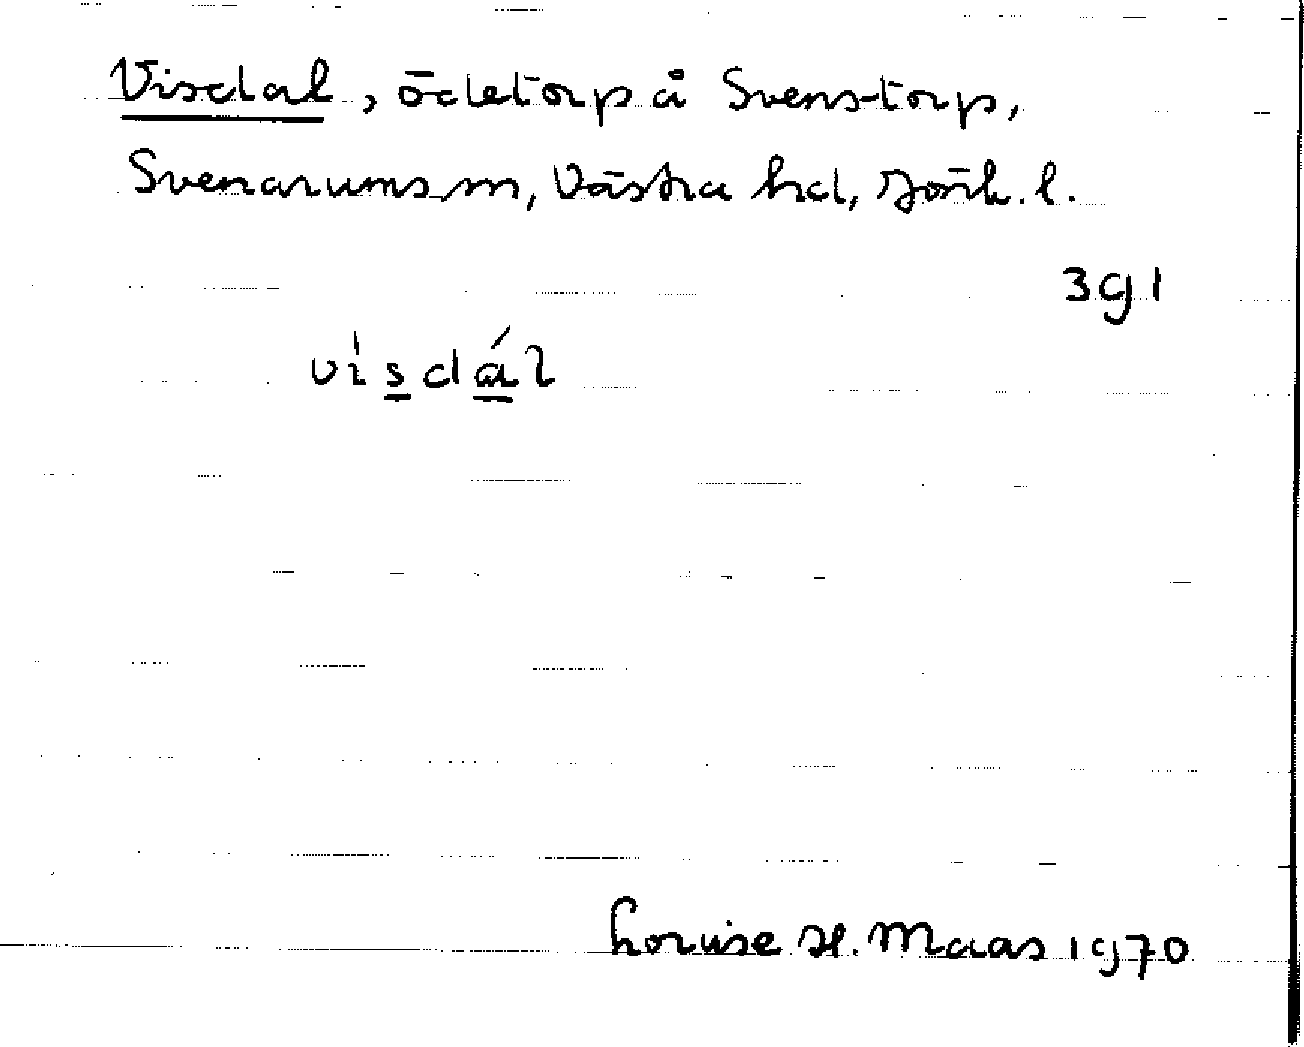 Visdal, ödetorp å Svenstorp,
Svenarums sn, Västra hd, Jönk. l.
391
vi̍sdál
Louise H. Maas 1970